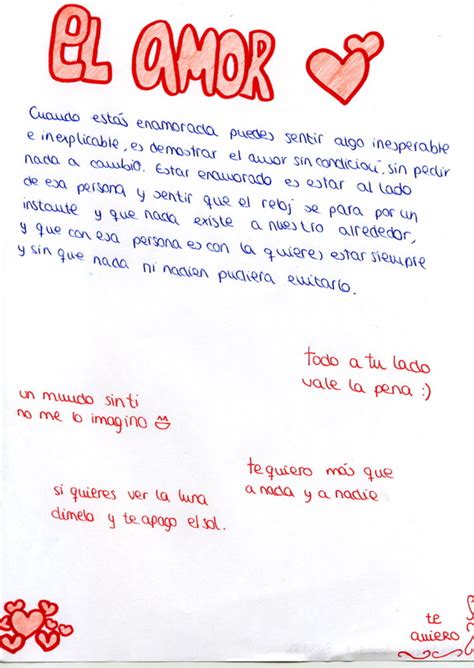 EL AMOR
Cuando estás enamorada puedes sentir algo inesperable
e inexplicable, es demostrar el amor sin condición, sin pedir
nada a cambio. Estar enamorado es estar al lado
de esa persona y sentir que el reloj se para por un
instante y que nada existe a nuestro alrededor,
y que con esa persona es con la quieres estar siempre
y sin que nada ni nadien pudiera evitarlo.
todo a tu lado
vale la pena :)
un mundo sin ti
no me lo imagino
te quiero más que
a nada y a nadie
si quieres ver la luna
dimelo y te apago el sol.
te
quiero